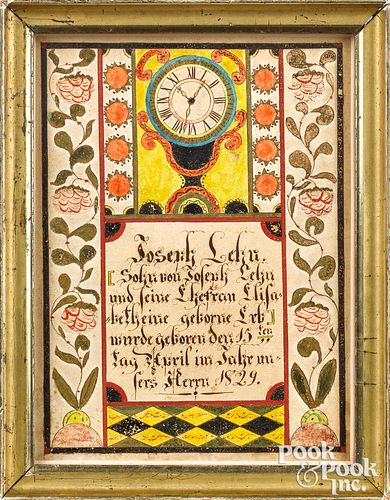 Joseph Lehn.
[Sohn von Joseph Lehn
und seine Ehefrau Elisa-
-betheine geborne Erb]
wurde geboren den 15ten
tag April im Jahr un-
sers Herrn 1829.
POOK
& POOK
INC.